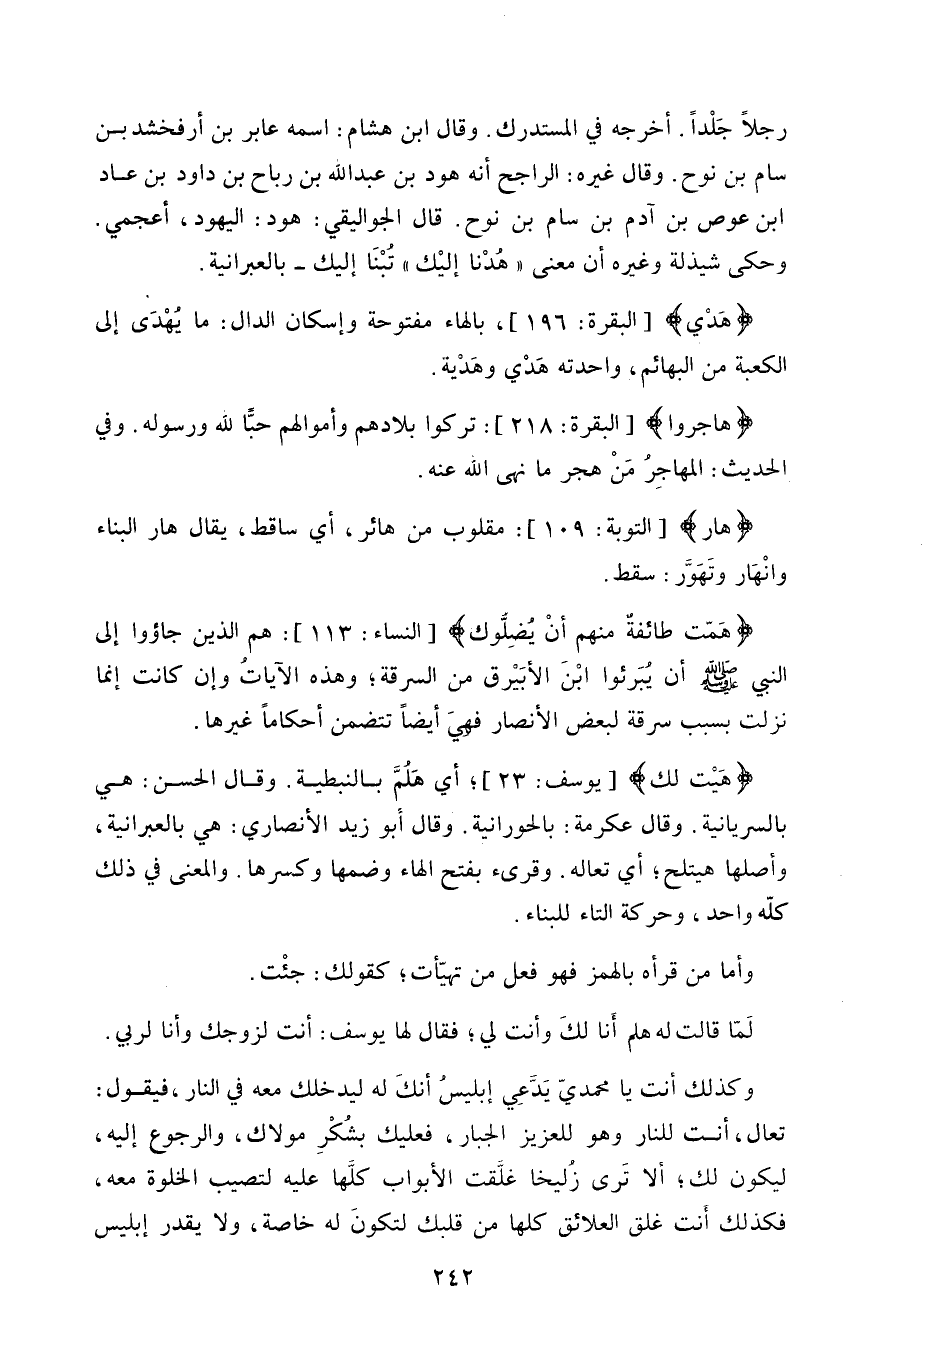 رجلاً جَلْداً. أخرجه في المستدرك. وقال ابن هشام: اسمه عابر بن أرفخشد بـن
سام بن نوح. وقال غيره: الراجح أنه هود بن عبدالله بن رباح بن داود بن عـاد
ابن عوص بن آدم بن سام بن نوح. قال الجواليقي: هود: اليهود، أعجمي.
وحكى شيذلة وغيره أن معنى «هُدْنا إليْك» تُبْنَا إليك ـ بالعبرانية.
﴿هَدْي﴾ [البقرة: ١٩٦]، بالهاء مفتوحة وإسكان الدال: ما يُهْدَى إلى
الكعبة من البهائم، واحدته هَدْي وهَدْية.
﴿هاجروا﴾ [البقرة: ٢١٨]: تركوا بلادهم وأموالهم حبًّا لله ورسوله. وفي
الحديث: المهاجِرُ مَنْ هجر ما نهى الله عنه.
﴿هار﴾ [التوبة: ١٠٩]: مقلوب من هائر، أي ساقط، يقال هار البناء
وانْهَار وتَهَوَّر: سقط.
﴿هَمّت طائفةٌ منهم أنْ يُضِلُّوك﴾ [النساء: ١١٣]: هم الذين جاؤوا إلى
النبي ﷺ أن يُبَرئوا ابْنَ الأبَيْرق من السرقة؛ وهذه الآياتُ وإن كانت إنما
نزلت بسبب سرقة لبعض الأنصار فهِيَ أيضاً تتضمن أحكاماً غيرها.
﴿هَيْت لك﴾ [يوسف: ٢٣]؛ أي هَلُمَّ بـالنبطيـة. وقـال الحسـن: هـي
بالسريانية. وقال عكرمة: بالحورانية. وقال أبو زيد الأنصاري: هي بالعبرانية،
وأصلها هيتلح؛ أي تعاله. وقرىء بفتح الهاء وضمها وكسرها. والمعنى في ذلك
كلّه واحد، وحركة التاء للبناء.
وأما من قرأه بالهمز فهو فعل من تهيّأت؛ كقولك: جئْت.
لَمّا قالت له هلم أَنا لكَ وأنت لي؛ فقال لها يوسف: أنت لزوجك وأنا لربي.
وكذلك أنت يا محمديّ يَدَّعِي إبليسُ أنكَ له ليدخلك معه في النار، فيقـول:
تعال، أنـت للنار وهو للعزيز الجبار، فعليك بشُكْرِ مولاك، والرجوع إليه،
ليكون لك؛ ألا تَرى زُليخا غلَّقت الأبواب كلَّها عليه لتصيب الخلوة معه،
فكذلك أَنت غلق العلائق كلها من قلبك لتكونَ له خاصة، ولا يقدر إبليس
٢٤٢